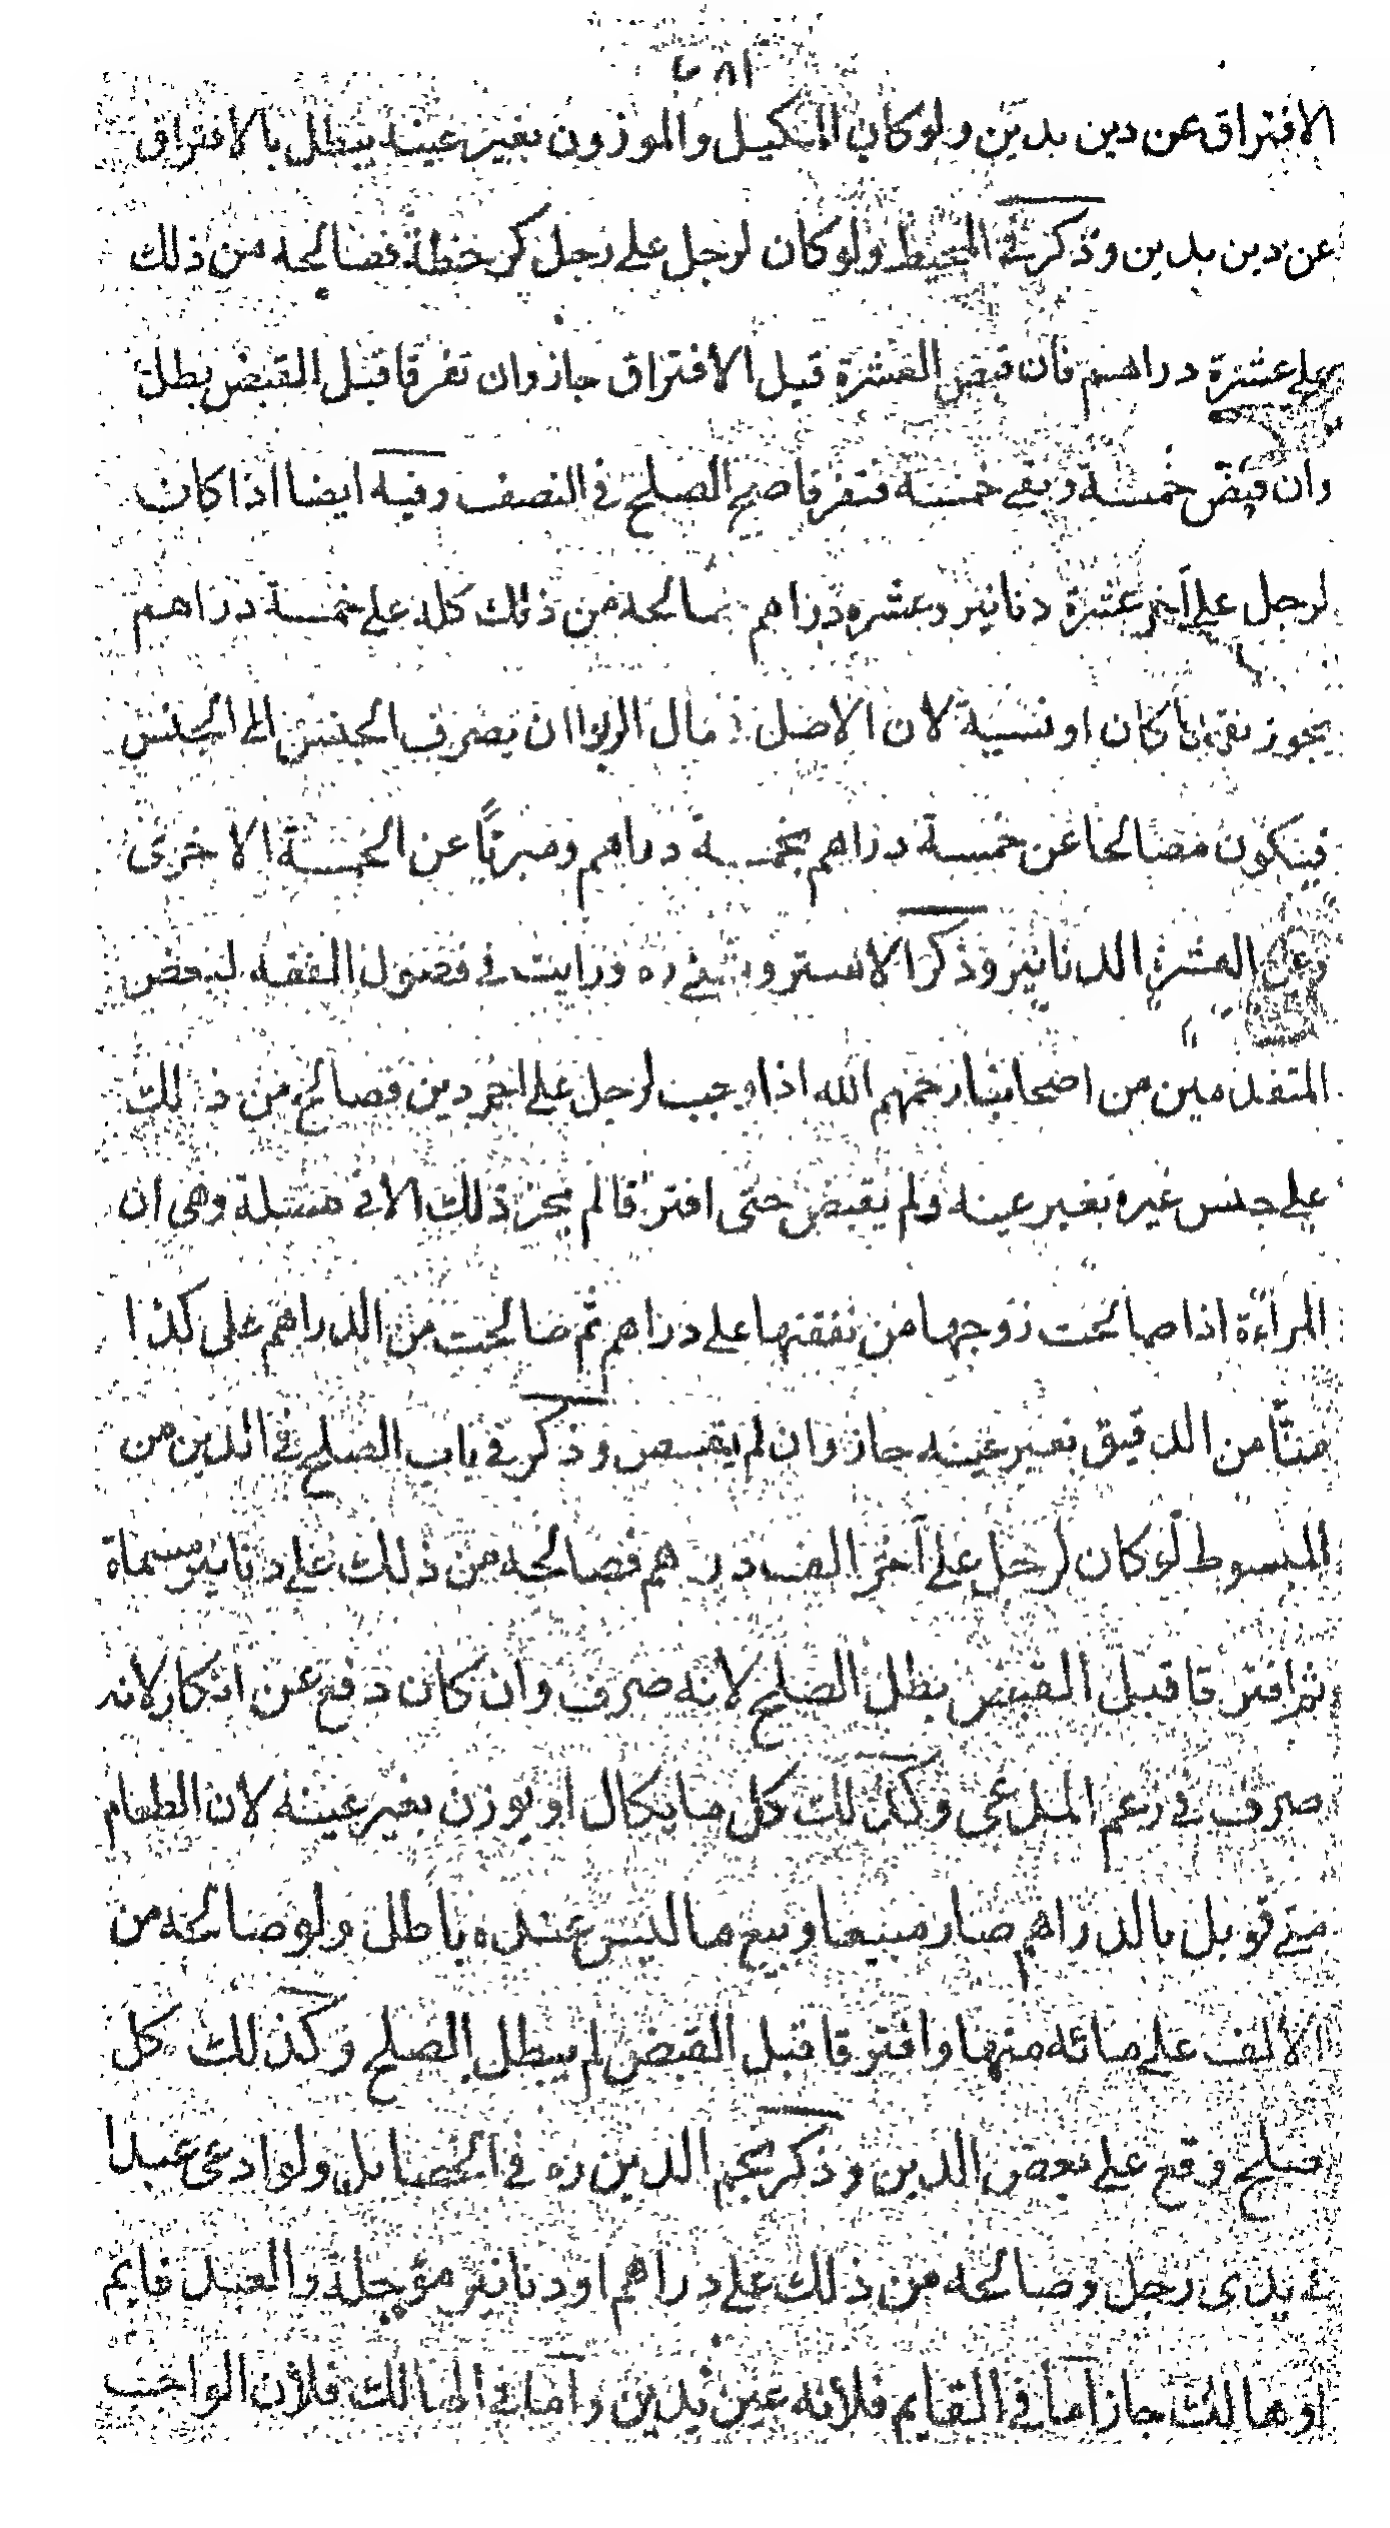 الافتراق عن دين بدين ولو كان المكيل والموزون بغير عينه يبطل بالافتراق
عن دين بدين وذكر في المحيط ولو كان لرجل على رجل كر حنطة فصالحه من ذلك
على عشرة دراهم فان قبض العشرة قبل الافتراق جاز وان تفرقا قبل القبض بطل
وان قبض خمسة وبقي خمسة فتفرقا صح الصلح في النصف وفيه ايضا اذا كان
لرجل على آخر عشرة دنانير وعشره دراهم صالحه من ذلك كله على خمسة دراهم
يجوز نقدا كان او نسيية لان الاصل في مال الربوا ان يصرف الجنس الى الجنس
فيكون مصالحا عن خمسة دراهم بخمسة دراهم ومبرئا عن الخمسة الاخرى
وعن العشرة الدنانير وذكر الاستروشني ره ورايت في فصول الفقه لبعض
المتقدمين من اصحابنا رحمهم الله اذا وجب لرجل على اخر دين فصالح من ذلك
على جنس غيره بغير عينه ولم يقبض حتى افترقا لم يجز ذلك الا في مسئلة وهي ان
المراءة اذا صالحت زوجها من نفقتها على دراهم ثم صالحت من الدراهم على كذا
منًّا من الدقيق بغير عينه جاز وان لم يقبض وذكر في باب الصلح في الدين من
المبسوط لو كان لرجل على آخر الف درهم فصالحه من ذلك على دنانير مسماة
ثم افترقا قبل القبض بطل الصلح لانه صرف وان كان دفع عن انكار لانه
صرف في زعم المدعى وكذلك كل ما يكال او يوزن بغير عينه لان الطعام
متى قوبل بالدراهم صار مبيعا وبيع ما ليس عنده باطل ولو صالحه من
الالف على مائه منها وافترقا قبل القبض لم يبطل الصلح وكذلك كل
صلح وقع على بعض الدين وذكر نجم الدين ره في الخصايل ولو ادعى عبدا
في يدى رجل وصالحه من ذلك على دراهم او دنانير مؤجلة والعبد قايم
او هالك جاز اما في القايم فلانه عين بدين واما في الهالك فلان الواجب